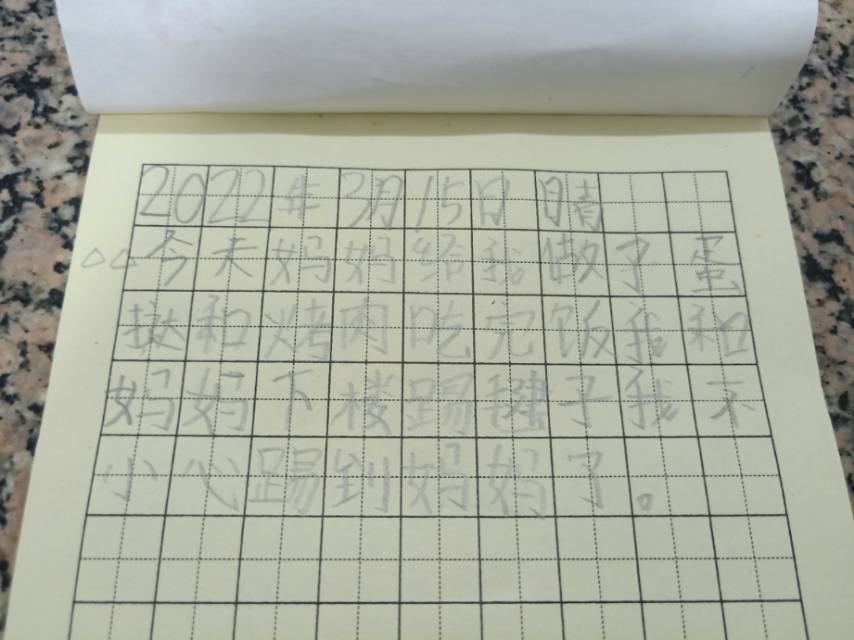 2022年3月15日 晴
△△今天妈妈给我做了蛋
挞和烤肉吃完饭我和
妈妈下楼踢毽子我不
小心踢到妈妈了。